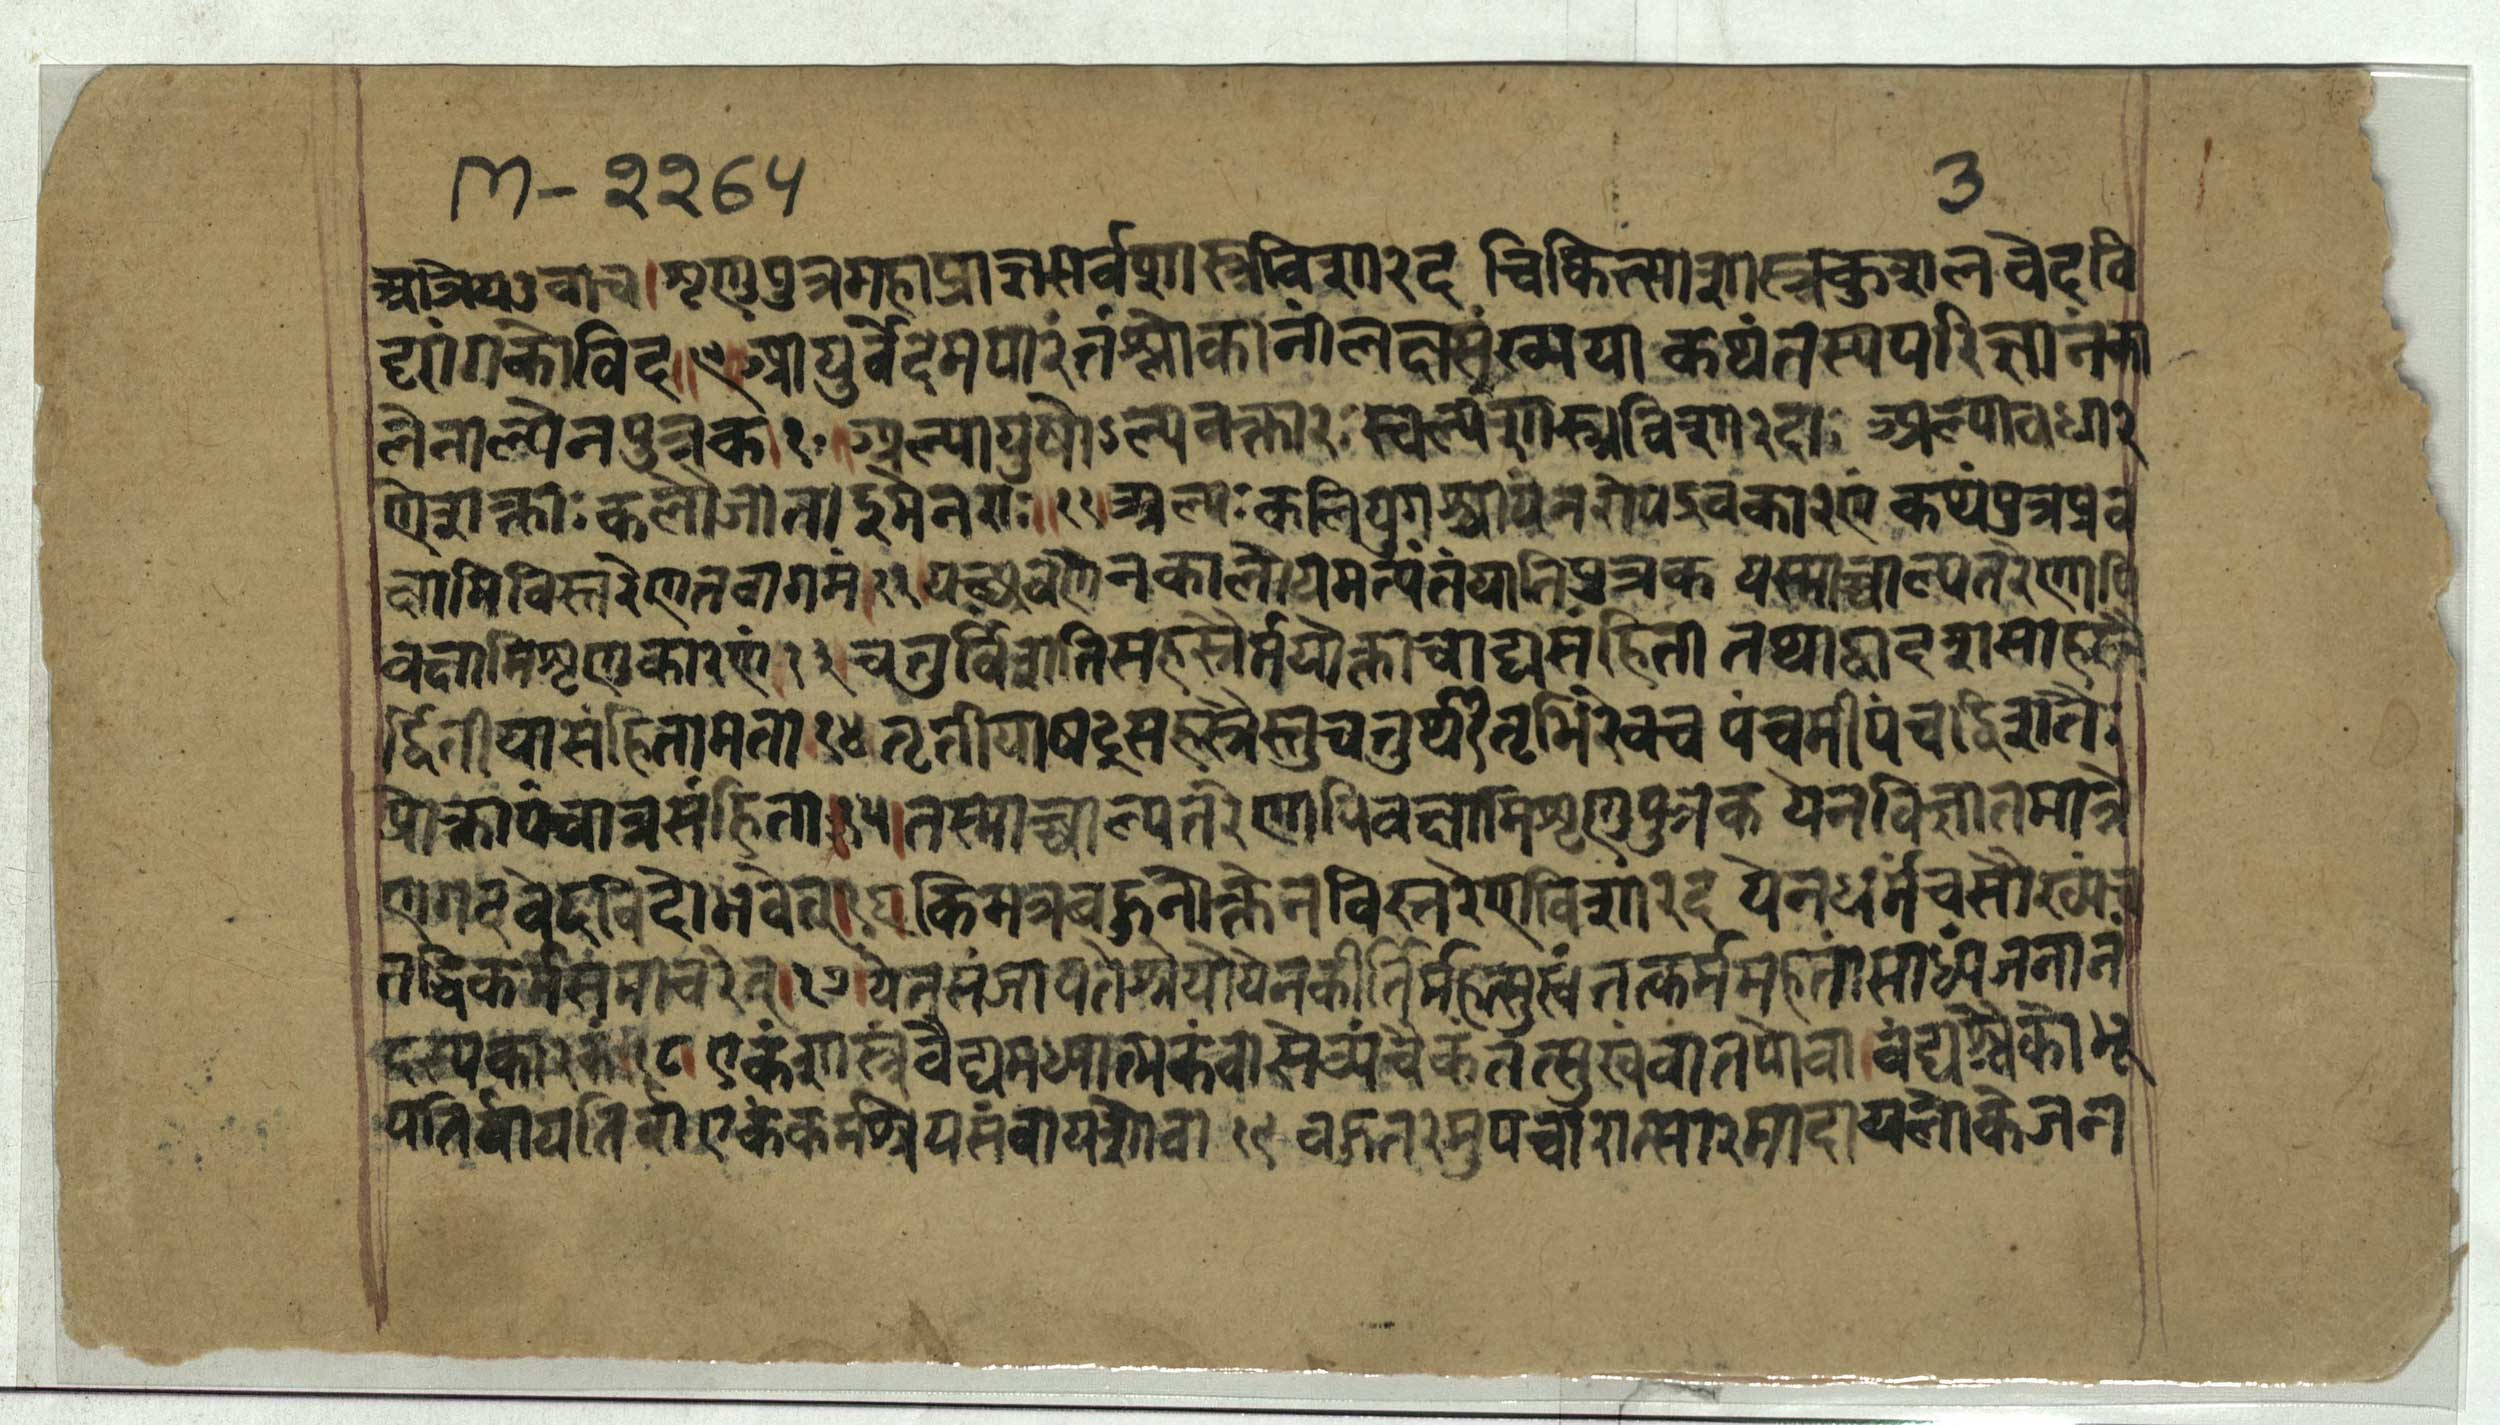 M-2264
3
आत्रेयउवाच। शृणुपुत्रमहाप्राज्ञसर्वशास्त्रविशारद चिकित्साशास्त्रकुशलवैदवि
द्यांगकोविद॥९॥आयुर्वेदमपारंतंश्लोकानांलक्षसंख्यया कथंतस्यपरिज्ञानंका
लेनाल्पेनपुत्रक।१०॥अल्पायुषोऽल्पवक्तारःस्वल्पशास्त्रविशारदाः अल्पावधार
णेशक्ताःकलौजातादुमेनराः॥११॥अल्पःकलियुगश्चायंनरोपद्रवकारणं कथंपुत्रप्रव
क्ष्यामिविस्तरेणतवागमं।१२। श्रवणेनकालोयमत्यंतंयातिपुत्रक यस्माच्चाल्पतरेणापि
वक्ष्यामिशृणुकारणं।१३। चतुर्विंशतिसहस्रैर्मयोक्ताचाद्यसंहिता तथाद्वादशसाहस्रै
र्द्वितीयासंहितामता।१४।तृतीयाषट्सहस्रैस्तुचतुर्थी पंचमीपंचद्विशतैः
प्रोक्तापंचात्रसंहिता।१५।तस्माच्चाल्पतरेणापिवक्ष्यामिशृणुपुत्रक येनविज्ञातमात्रे
णगदवेदविदोभवेत्।१६।किमत्रबहुनोक्तेनविस्तरेणविशारद येनधर्मचसौख्यंच
तद्धिकर्मसमाचरेत्।१७।येनसंजायतेश्रेयोयेनकीर्तिर्महत्सुखं तत्कर्ममहतांसाध्यंजनानं
दस्यकारकं।१८।एकंशास्त्रंवैद्यमध्यात्मकंवासेव्यंचैकंतत्सुखंवातपोवा।वंद्यश्चैकोभू
पतिर्वायतिर्वाएकंकर्मश्रेयसंवायशोवा १९ बहुतरमुपचारात्सारमादायलोकेजन